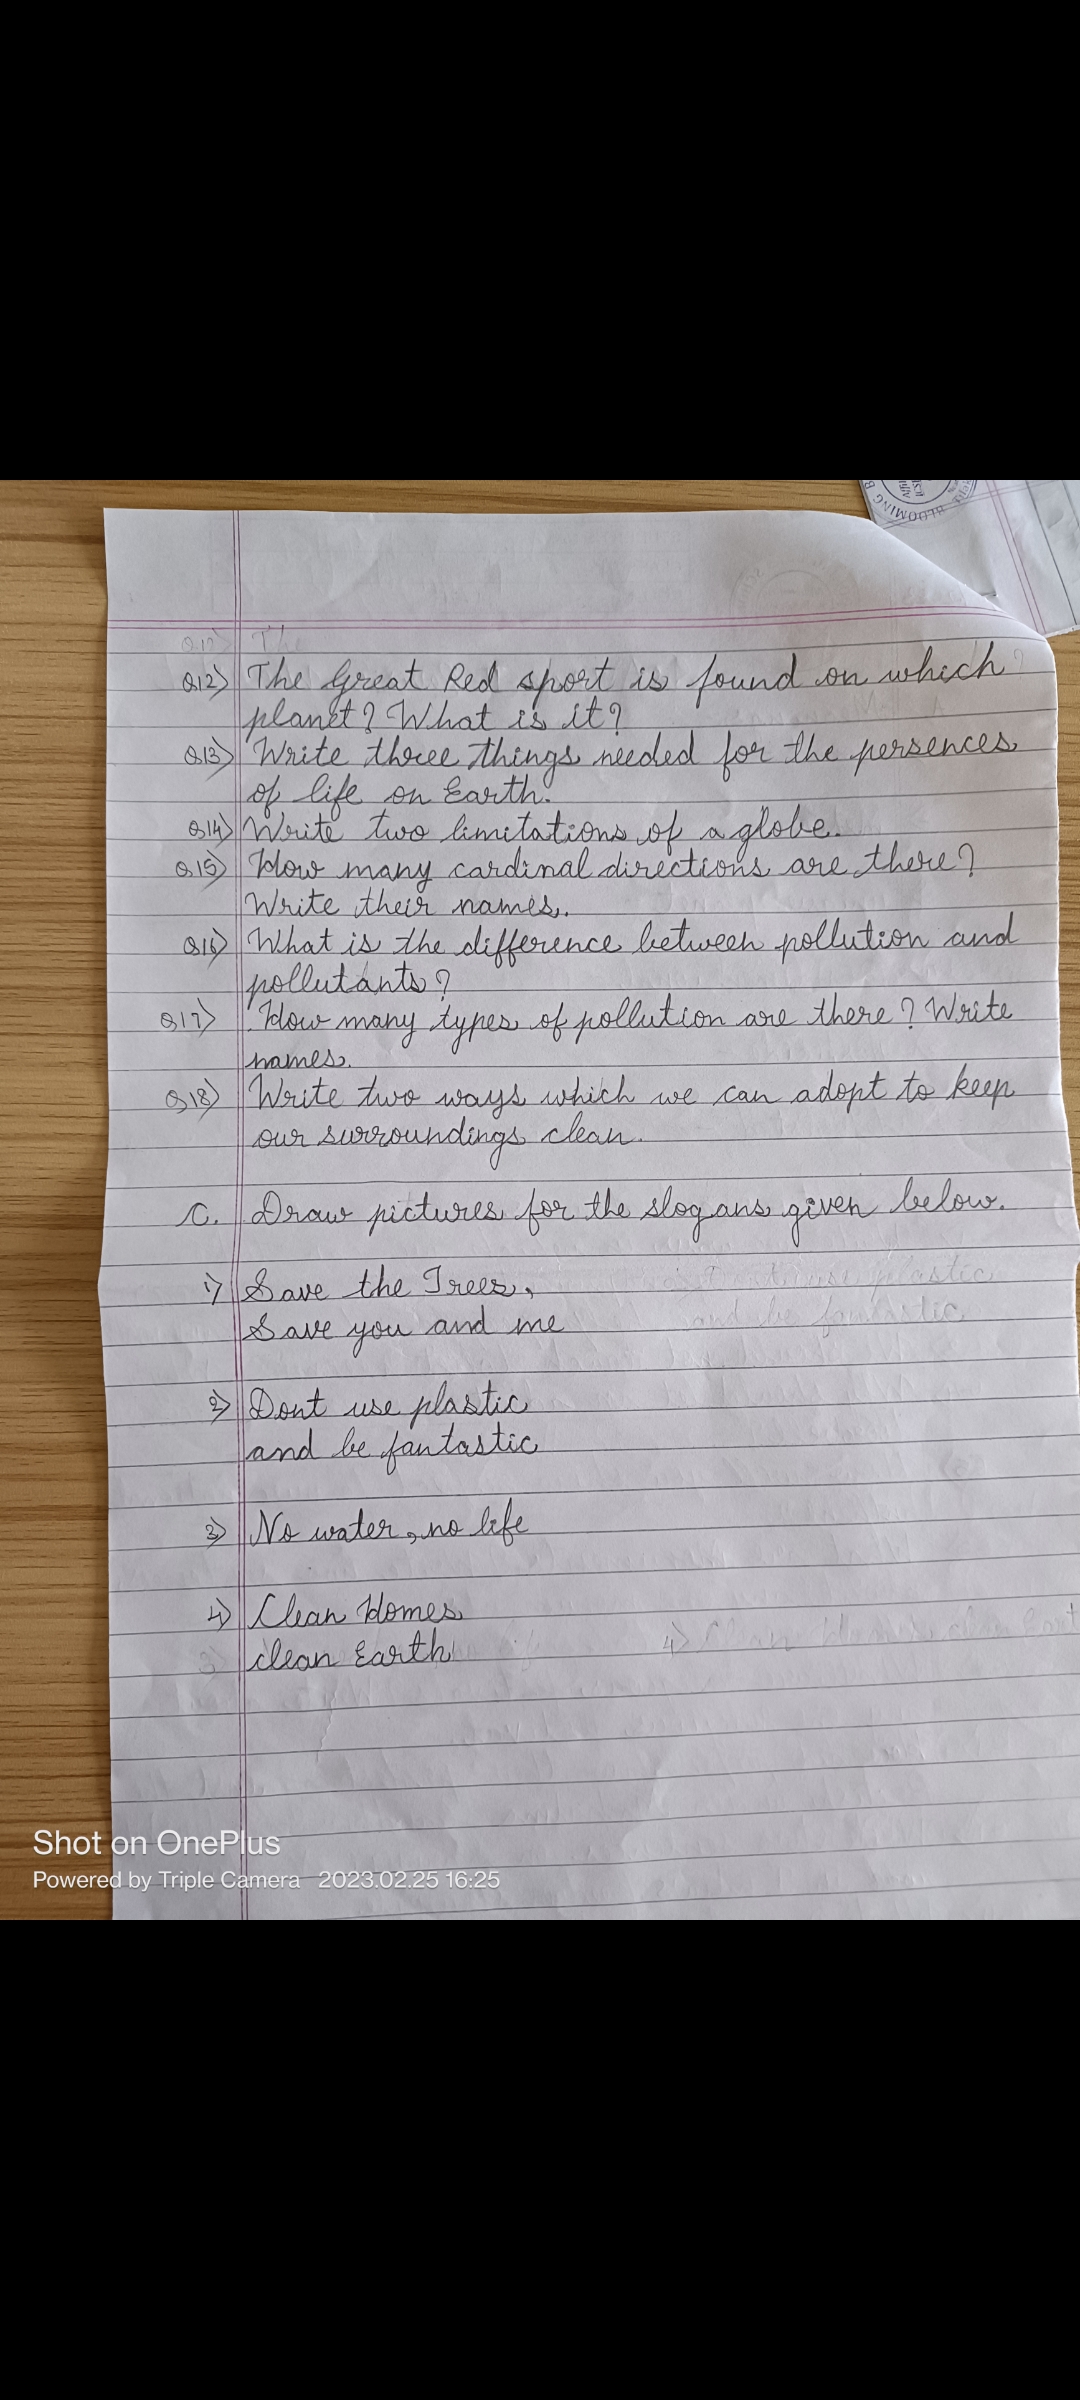 BLOOMING B
Q12) The Great Red sport is found on which
planet? What is it?
Q13) Write three things needed for the persences
of life on Earth.
Q14) Write two limitations of a globe.
Q15) How many cardinal directions are there?
Write their names.
Q16) What is the difference between pollution and
pollutants?
Q17) How many types of pollution are there? Write
names.
Q18) Write two ways which we can adopt to keep
our surroundings clean.
C. Draw pictures for the slogans given below.
1) Save the Trees,
Save you and me
2) Dont use plastic
and be fantastic
3) No water, no life
4) Clean Homes
clean Earth
Shot on OnePlus
Powered by Triple Camera 2023.02.25 16:25